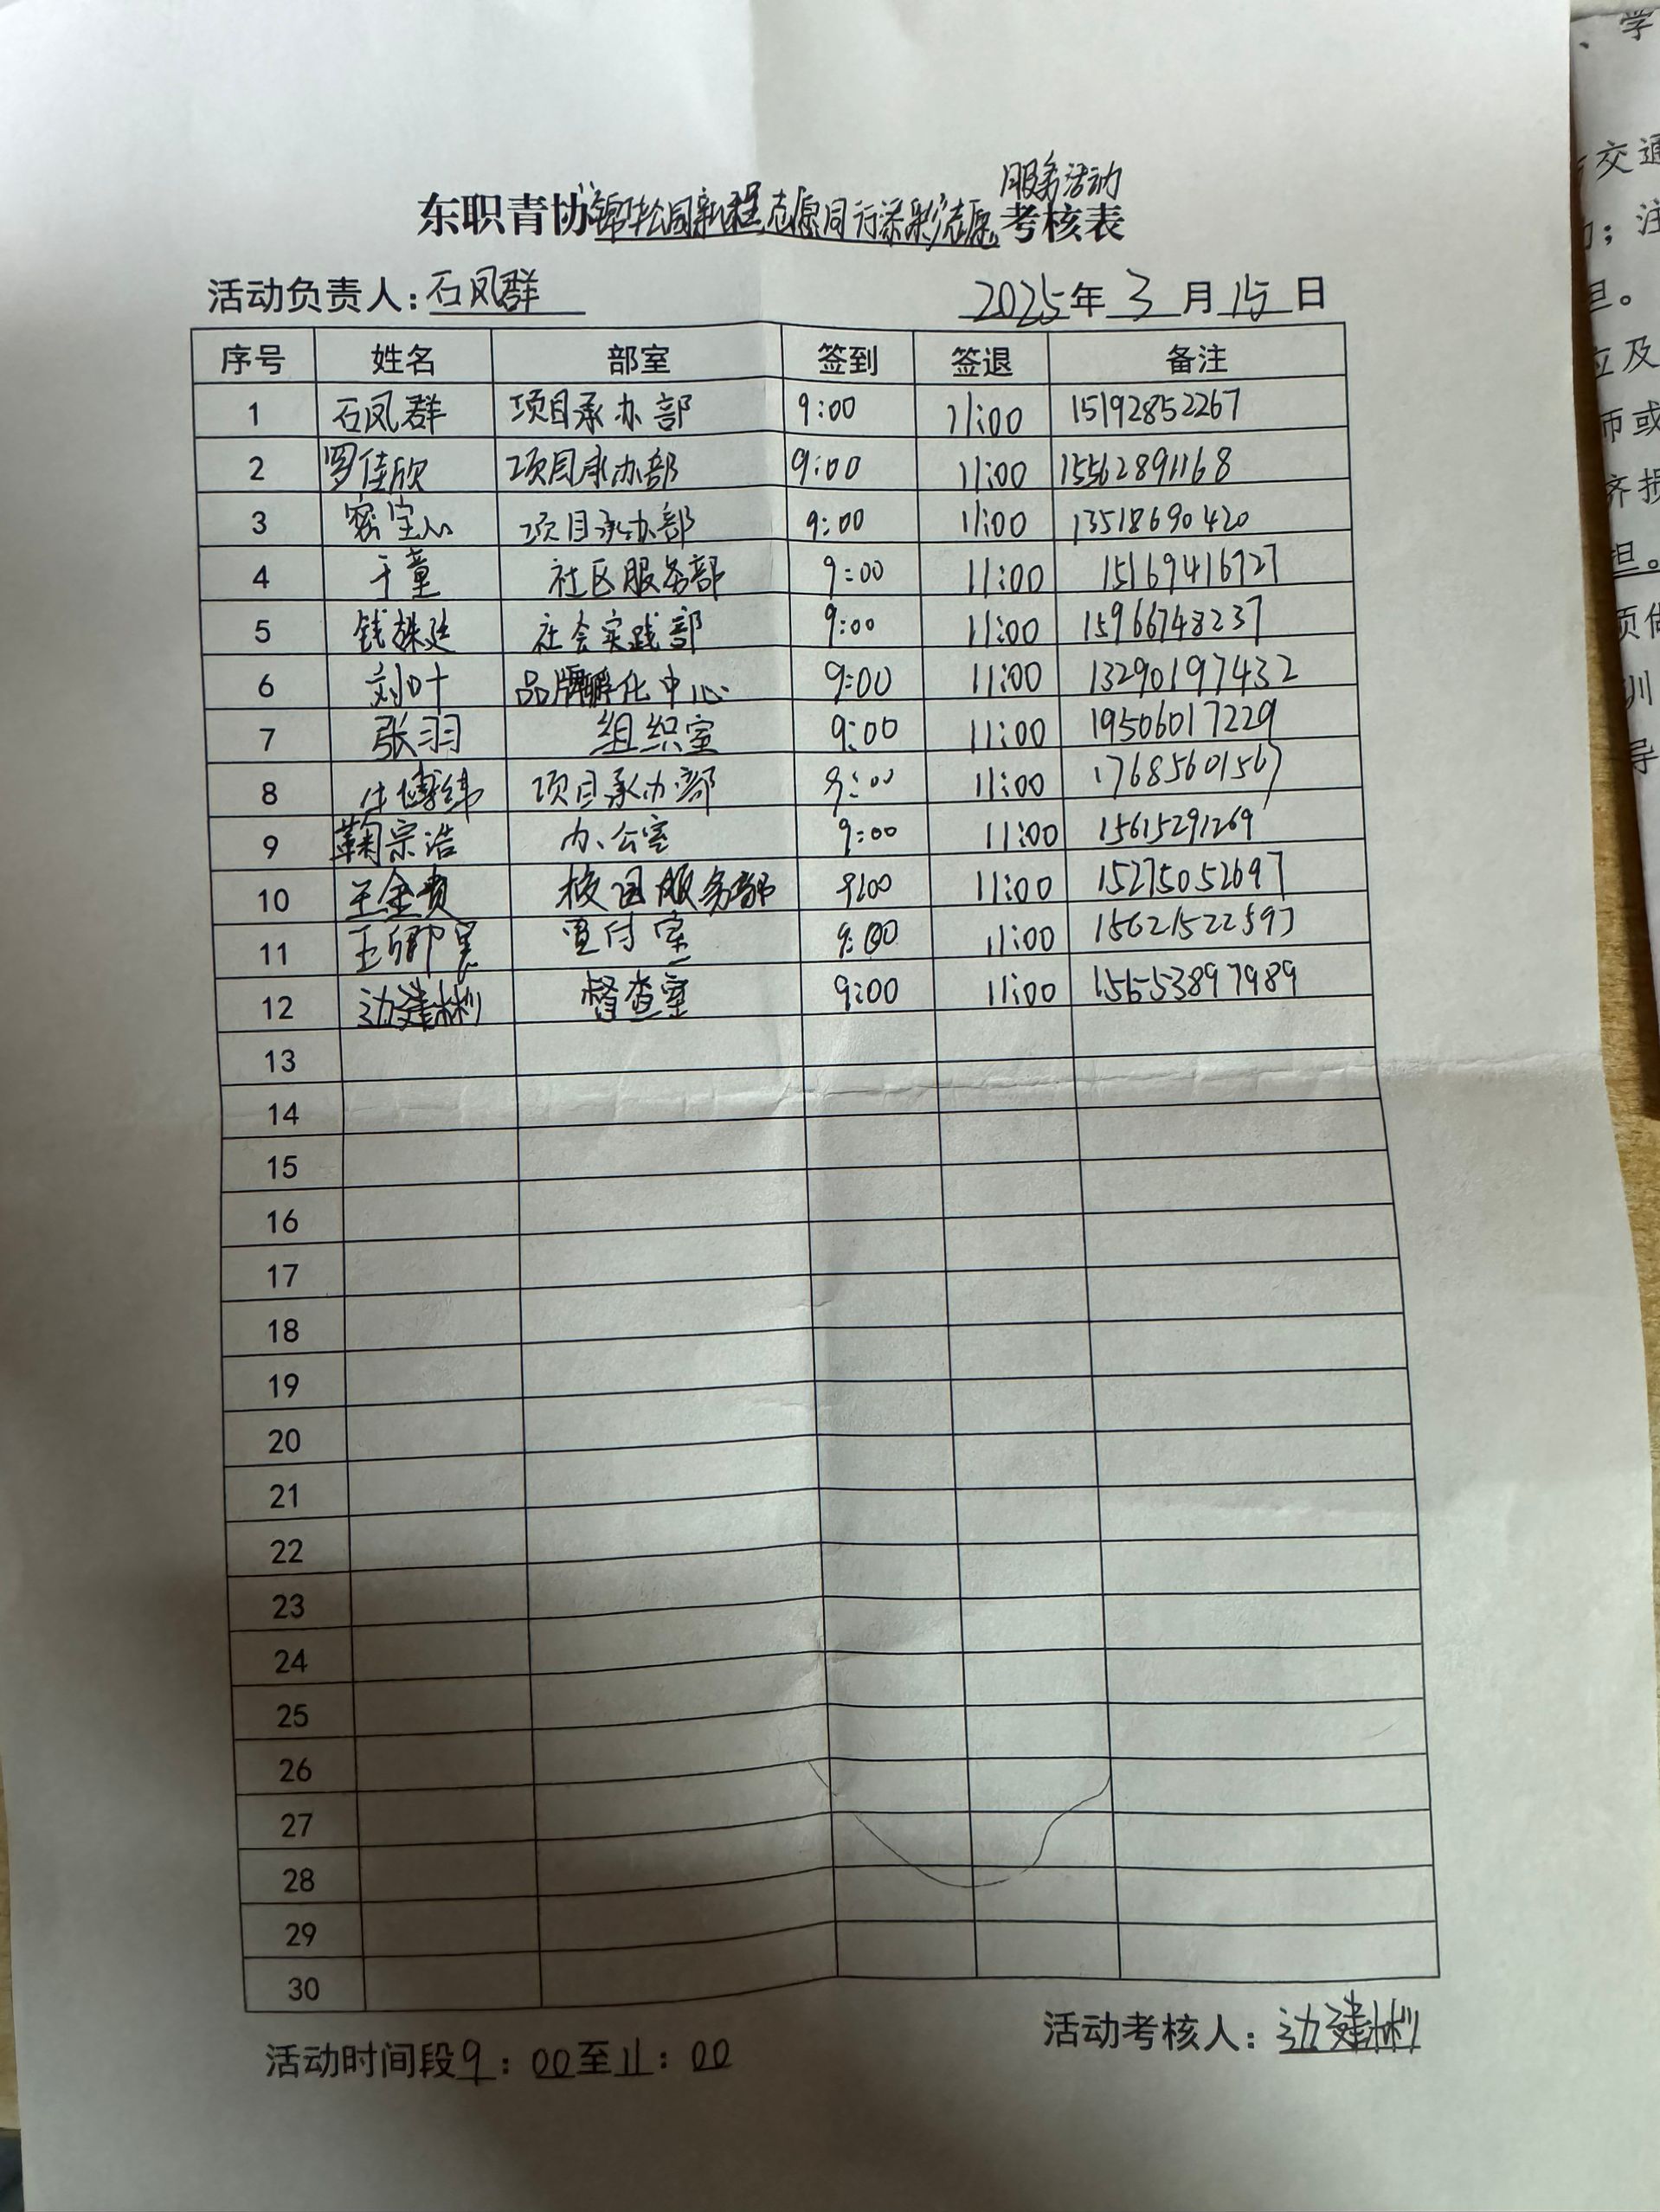 服务活动
东职青协"锦华松同新程 志愿同行添彩"志愿 考核表
活动负责人：石凤群 2025年 3 月 15 日
序号 姓名 部室 签到 签退 备注
1 石凤群 项目承办部 9:00 11:00 15192852267
2 罗佳欣 项目承办部 9:00 11:00 15562891168
3 密宝心 项目承办部 9:00 11:00 13518690420
4 于童 社区服务部 9:00 11:00 15169416727
5 钱姝廷 社会实践部 9:00 11:00 15966748237
6 刘叶 品牌孵化中心 9:00 11:00 13290197432
7 张羽 组织室 9:00 11:00 19506017229
8 牛博纬 项目承办部 9:00 11:00 17685601567
9 鞠宗浩 办公室 9:00 11:00 15615291269
10 王金贵 校园服务部 9:00 11:00 15275052697
11 王卿 室 9:00 11:00 15621522597
12 边建彬 督查室 9:00 11:00 15653897989
13
14
15
16
17
18
19
20
21
22
23
24
25
26
27
28
29
30
活动考核人：边建彬
活动时间段9：00至11：00
、学
交通
；注
担。
位及
师或
济损
担。
须做
训
导